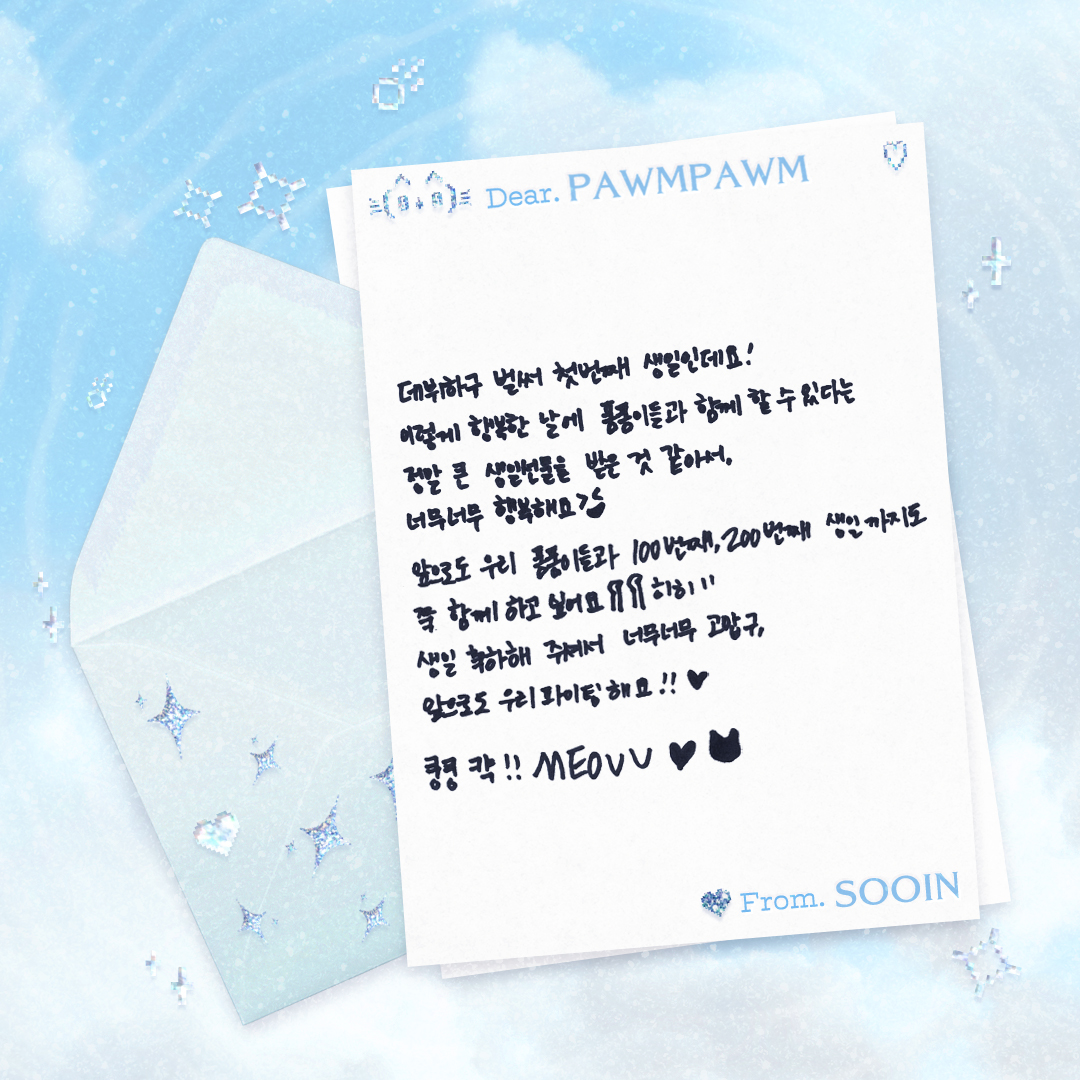 Dear. PAWMPAWM
데뷔하구 벌써 첫번째 생일인데요!
이렇게 행복한 날에 퐁퐁이들과 함께 할 수 있다는
정말 큰 생일선물을 받은 것 같아서,
너무너무 행복해요
앞으로도 우리 퐁퐁이들과 100번째, 200번째 생일까지도
쭉 함께 하고 싶어요 히히
생일 축하해 줘서 너무너무 고맙구,
앞으로도 우리 파이팅해요!! ♥
캭!! MEOVV ♥
From. SOOIN